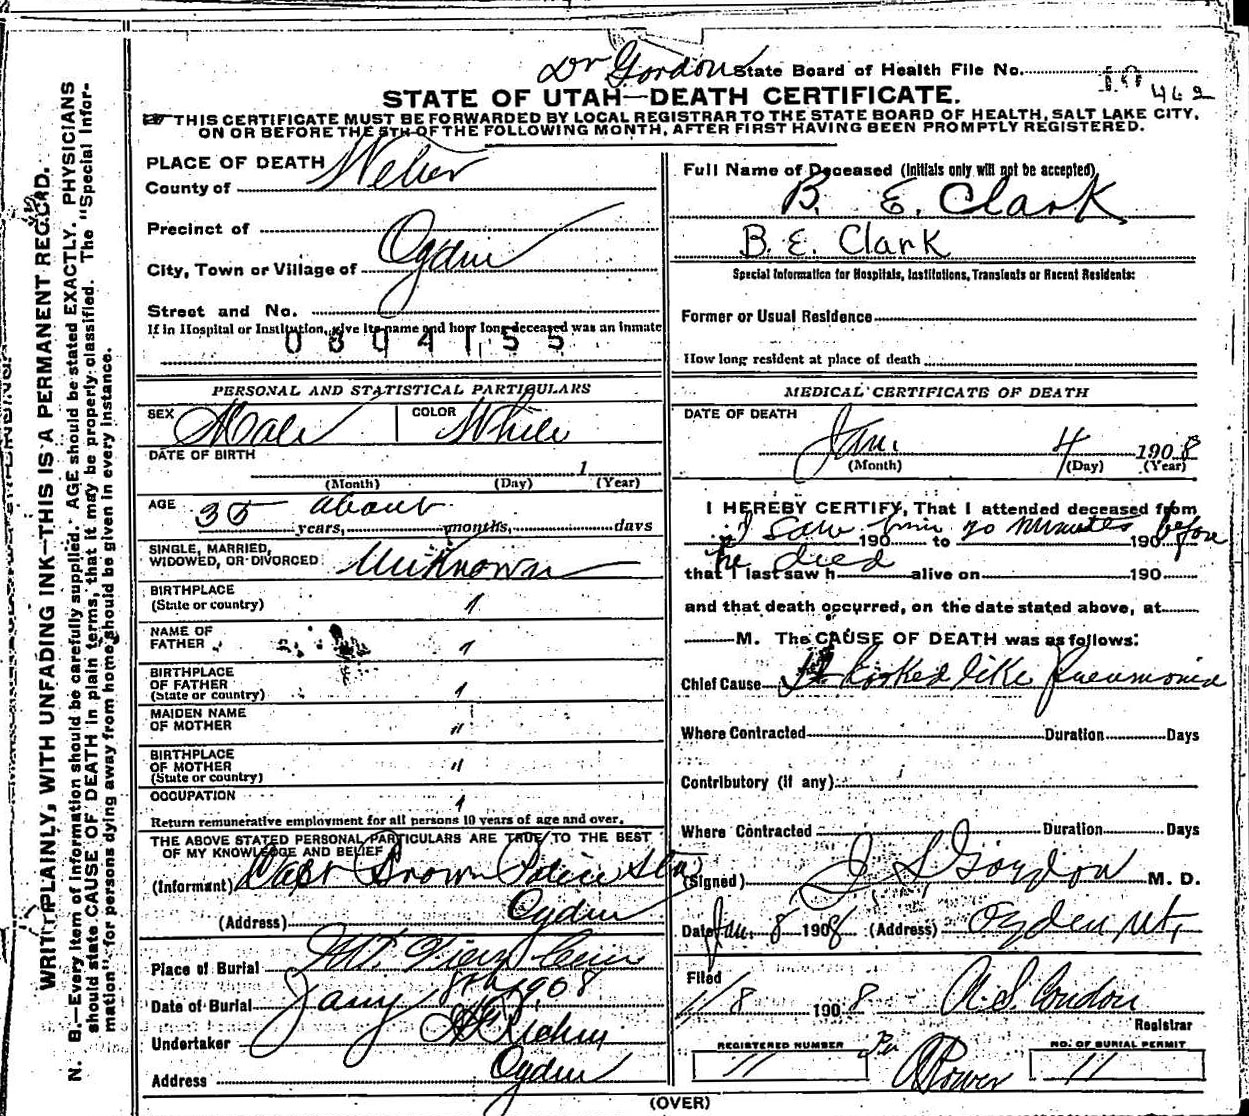 Dr Gordon State Board of Health File No.
462
STATE OF UTAH—DEATH CERTIFICATE.
THIS CERTIFICATE MUST BE FORWARDED BY LOCAL REGISTRAR TO THE STATE BOARD OF HEALTH, SALT LAKE CITY,
ON OR BEFORE THE 5TH OF THE FOLLOWING MONTH, AFTER FIRST HAVING BEEN PROMPTLY REGISTERED.
WRITE PLAINLY, WITH UNFADING INK—THIS IS A PERMANENT RECORD.
N. B.—Every item of information should be carefully supplied. AGE should be stated EXACTLY. PHYSICIANS
should state CAUSE OF DEATH in plain terms, that it may be properly classified. The "Special Infor-
mation" for persons dying away from home should be given in every instance.
PLACE OF DEATH
County of Weber
Precinct of
City, Town or Village of Ogden
Street and No.
If in Hospital or Institution, give its name and how long deceased was an inmate
0804155
PERSONAL AND STATISTICAL PARTICULARS
SEX Male COLOR White
DATE OF BIRTH
1
(Month) (Day) (Year)
AGE 35 about
years, months, days
SINGLE, MARRIED,
WIDOWED, OR DIVORCED Unknown
BIRTHPLACE
(State or country) "
NAME OF
FATHER "
BIRTHPLACE
OF FATHER
(State or country) "
MAIDEN NAME
OF MOTHER "
BIRTHPLACE
OF MOTHER
(State or country) "
OCCUPATION "
Return remunerative employment for all persons 10 years of age and over.
THE ABOVE STATED PERSONAL PARTICULARS ARE TRUE TO THE BEST
OF MY KNOWLEDGE AND BELIEF
(Informant) Capt Brown Police Sta
(Address) Ogden
Place of Burial Mt. View Cem
Date of Burial Jany 8th 1908
Undertaker
Address Ogden
Full Name of Deceased (Initials only will not be accepted)
B. E. Clark
B. E. Clark
Special Information for Hospitals, Institutions, Transients or Recent Residents:
Former or Usual Residence
How long resident at place of death
MEDICAL CERTIFICATE OF DEATH
DATE OF DEATH
Jan. 4 1908
(Month) (Day) (Year)
I HEREBY CERTIFY, That I attended deceased from
I saw him 20 minutes before
190 to 190
he died
that I last saw h alive on 190
and that death occurred, on the date stated above, at
M. The CAUSE OF DEATH was as follows:
Chief Cause It looked like Pneumonia
Where Contracted Duration Days
Contributory (if any)
Where Contracted Duration Days
(Signed) J S Gordon M. D.
Date Jan. 8 1908 (Address) Ogden Ut,
Filed
1/8 1908 A. S. Condon
Registrar
REGISTERED NUMBER NO. OF BURIAL PERMIT
11 Per 11
(OVER)